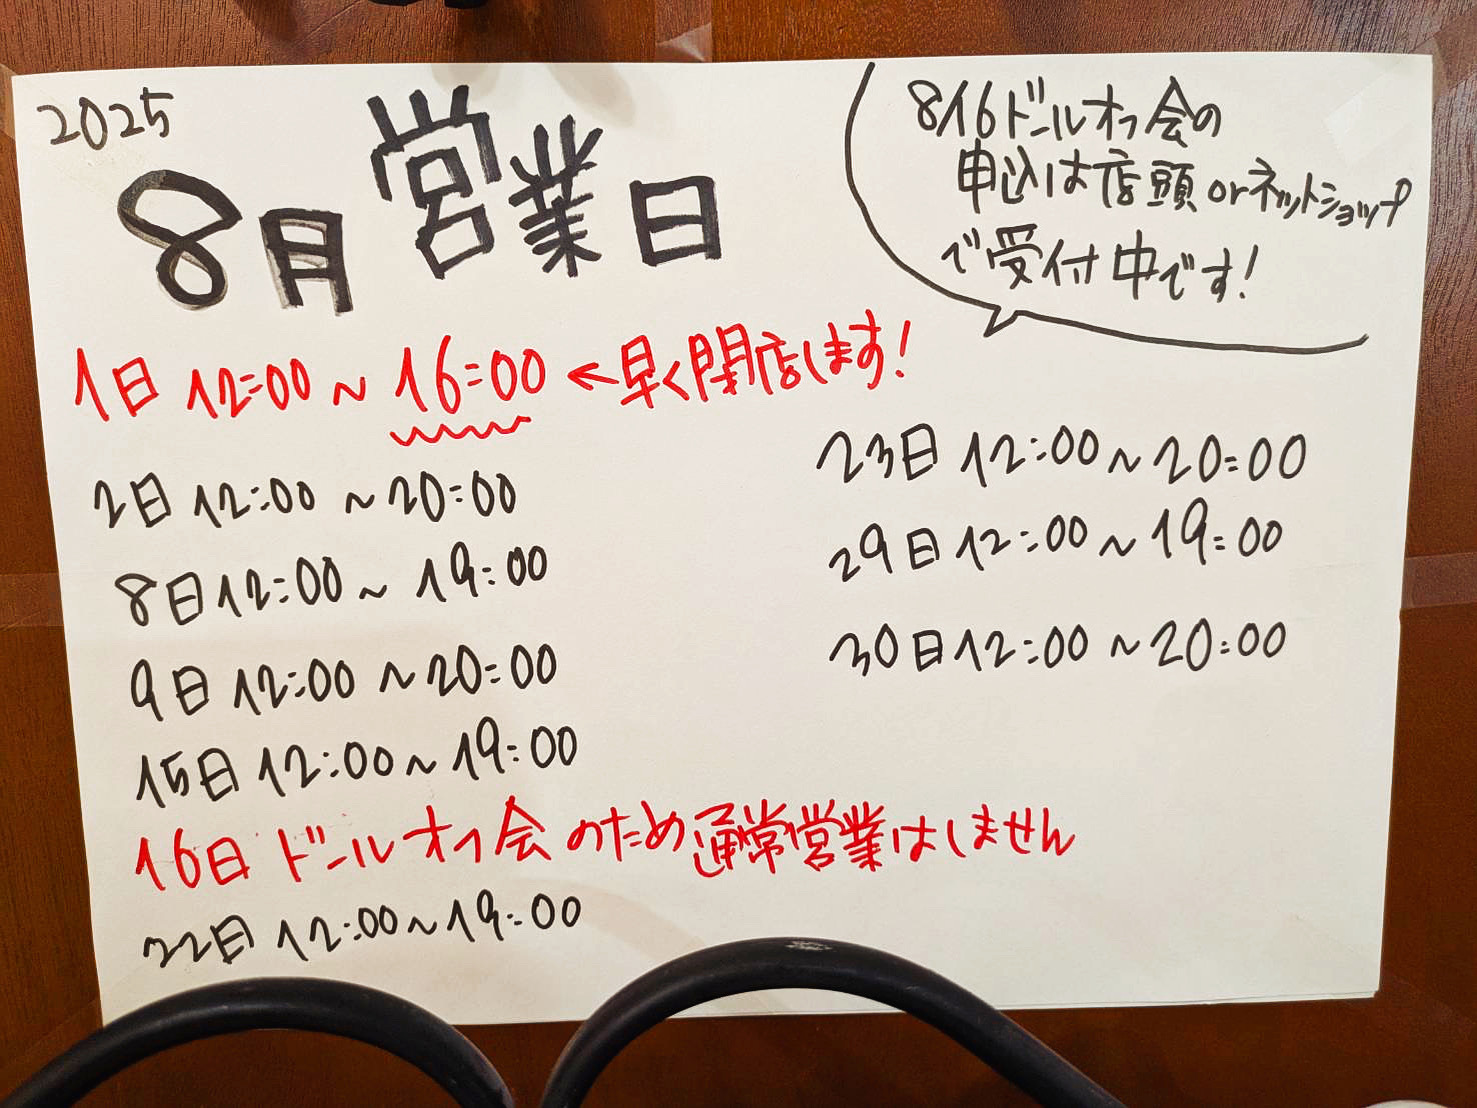 2025
8月営業日
816ドールオフ会の
申込は店頭orネットショップ
で受付中です!
1日 12:00～16:00←早く閉店します!
2日 12:00～20:00
8日 12:00～19:00
9日 12:00～20:00
15日 12:00～19:00
16日 ドールオフ会のため通常営業はしません
22日 12:00～19:00
23日 12:00～20:00
29日 12:00～19:00
30日 12:00～20:00